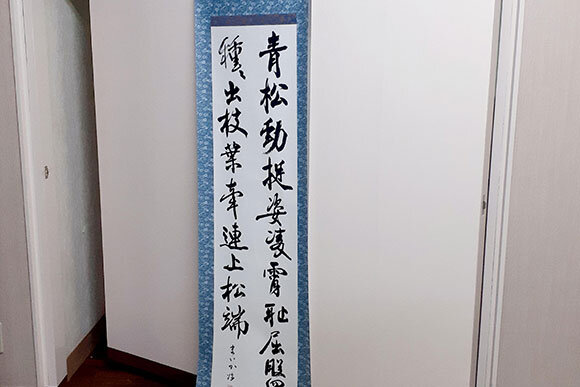 青松勁挺姿凌霄耻屈盤
種々出枝葉牽連上松端